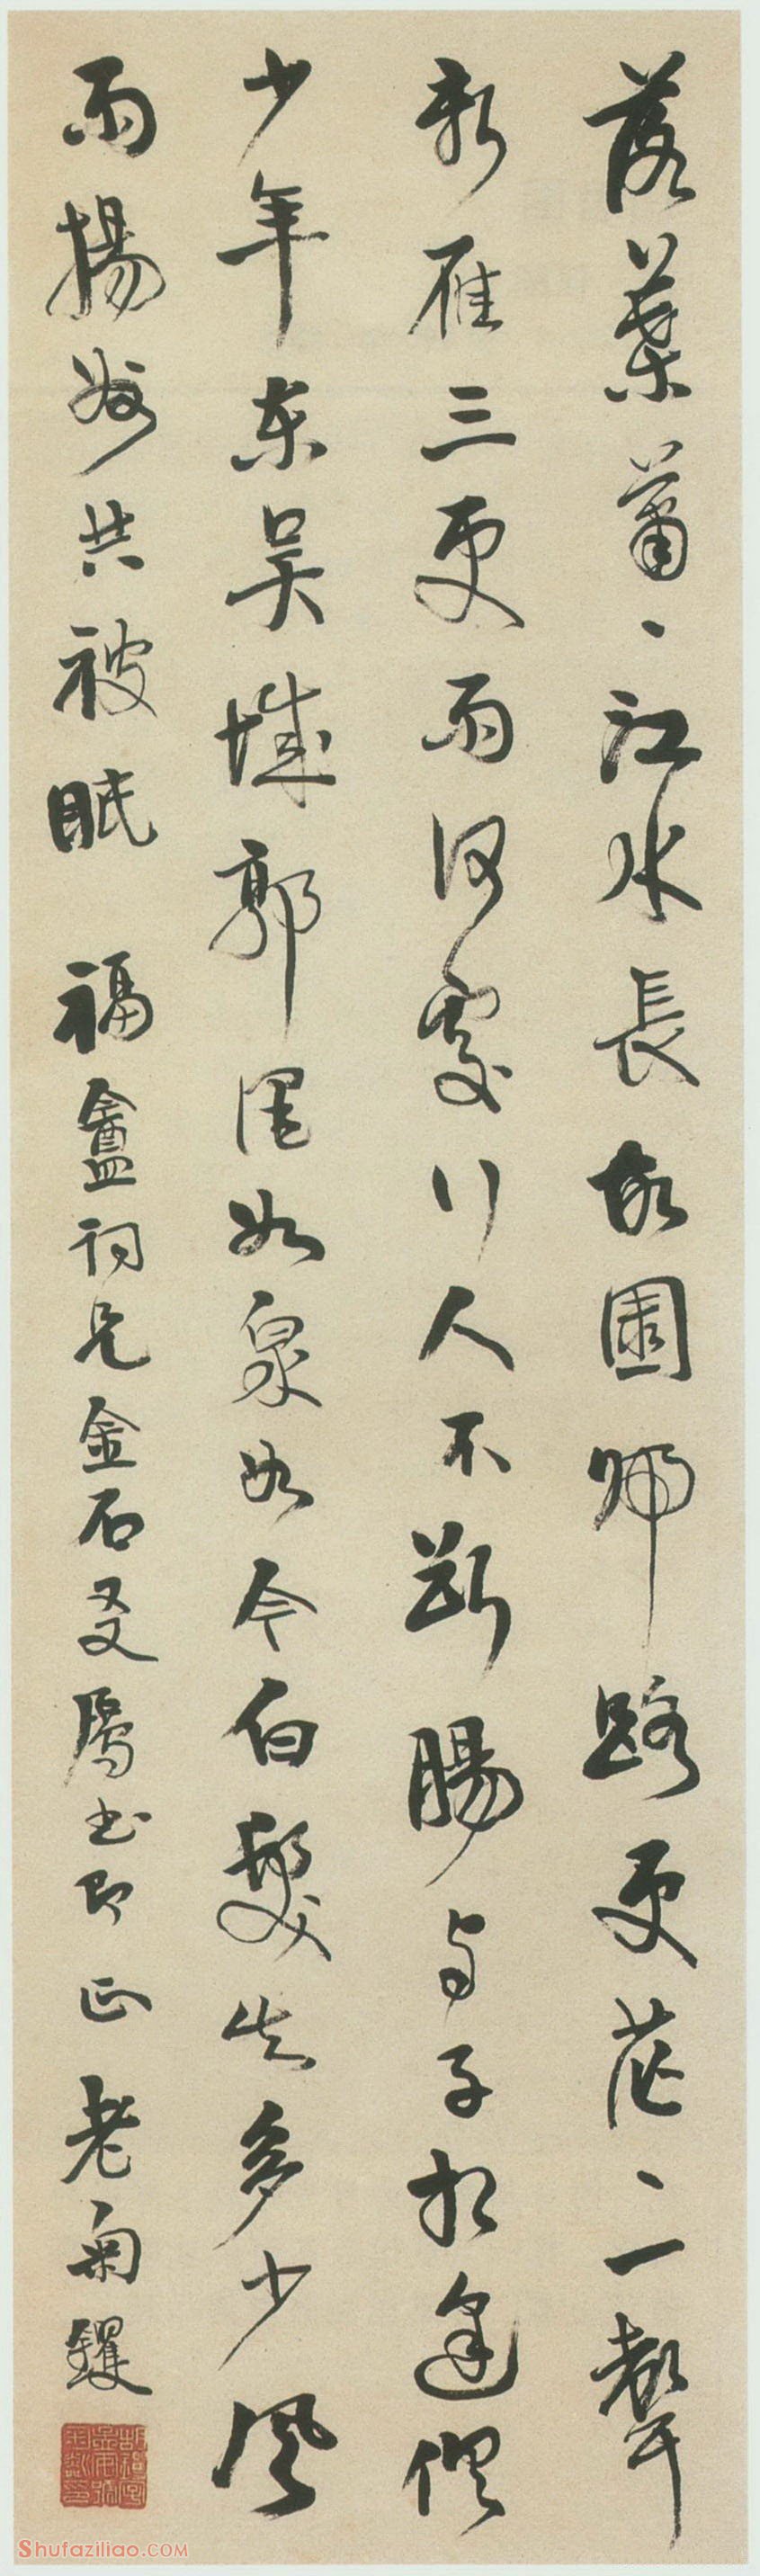 落葉蕭、江水長故園歸路更茫、一聲
新雁三更雨何處行人不斷腸与子相逢俱
少年東吳城郭酒如泉如今白髮知多少風
雨揚州共被眠 福盦詞兄金石交屬書即正 老菊钁
Shufaziliao.COM